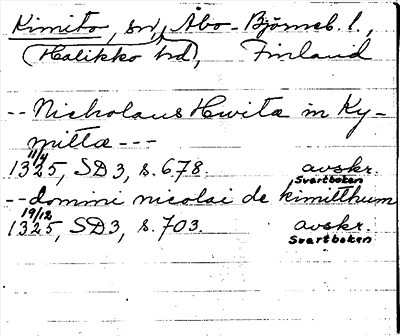 Kimito, sn, Åbo-Björneb. l.,
(Halikko hd), Finland
-- Nicholaus Hwitæ in Ky-
mittæ ---
11/4
1325, SD3, s. 678. avskr.
Svartboken
-- dommi nicolai de kimitthum
19/12
1325, SD3, s. 703. avskr.
Svartboken